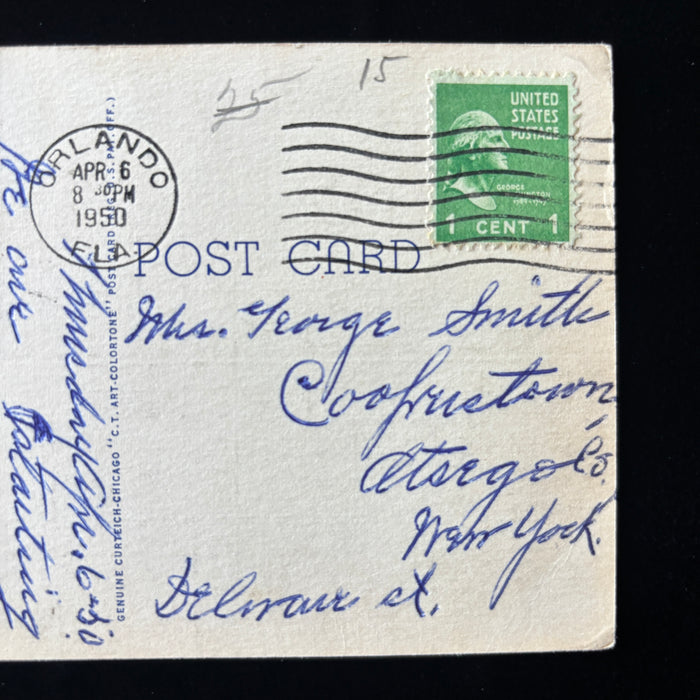 25
15
ORLANDO
APR 6
8 30 PM
1950
FLA
UNITED
STATES
POSTAGE
GEORGE
WASHINGTON
1789-1797
1 CENT 1
POST CARD
Mrs. George Smith
Cooperstown
Otsego Co.
New York.
Delaware st.
GENUINE CURTEICH-CHICAGO "C.T. ART-COLORTONE" POST CARD (REG. U.S. PAT. OFF.)
Thursday Apr. 6-50
our